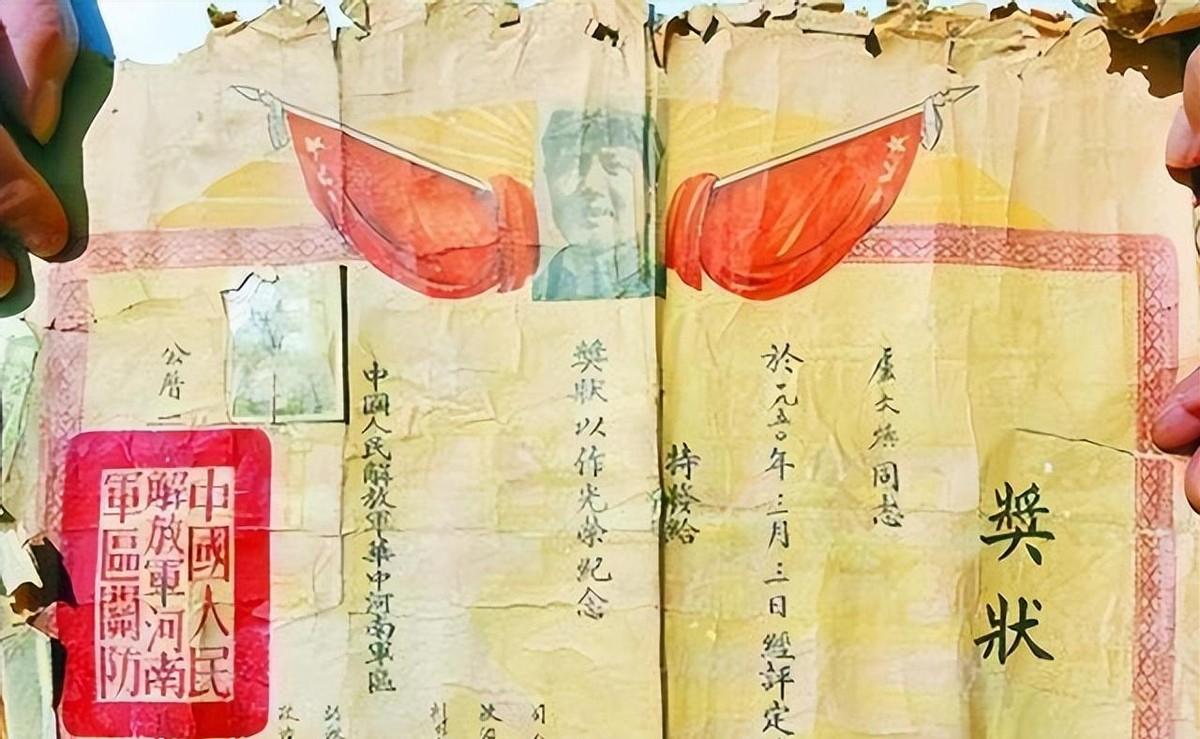 奬狀
盧文煥同志
於一九五〇年三月三日經評定
特發給
奬狀以作光榮紀念
中國人民解放軍華中河南軍區
公曆一
中國人民
解放軍河南
軍區關防